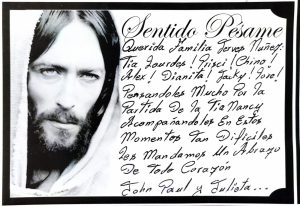 Sentido Pésame
Querida Familia Torres Nuñez:
Tia Lourdes! Crisci! Chino!
Alex! Dianita! Jacky! Jose!
Pensandoles Mucho Por la
Partida De la Tia Nancy
Acompañandoles En Estos
Momentos Tan Dificiles
Les Mandamos Un Abrazo
De Todo Corazón
John Paul y Julieta...